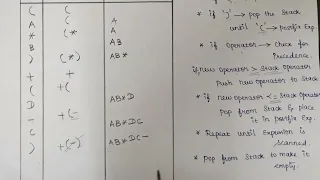 ( ( 
A ( A
* (* A
B (* AB
) (*) AB*
+ +
( +(
D +( AB*D
- +(-
C +(- AB*DC
) +(-) AB*DC-
* if ')' → pop the Stack
until '(' → postfix Exp.
* if Operator → Check for
Precedence
if new Operator > Stack Operator
Push new Operator to Stack
* if new operator <= Stack Operator
pop from Stack & place
it in postfix Exp.
* Repeat until Expression is
scanned.
* Pop from Stack to make it
empty.